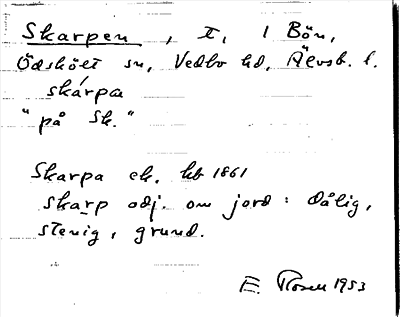 Skarpen, t, i Bön,
Ödskölt sn, Vedbo hd, Älvsb. l.
skárpa
"på Sk."
Skarpa ek. kb 1861
skarp adj. om jord: dålig,
stenig, grund.
E. Rosell 1953